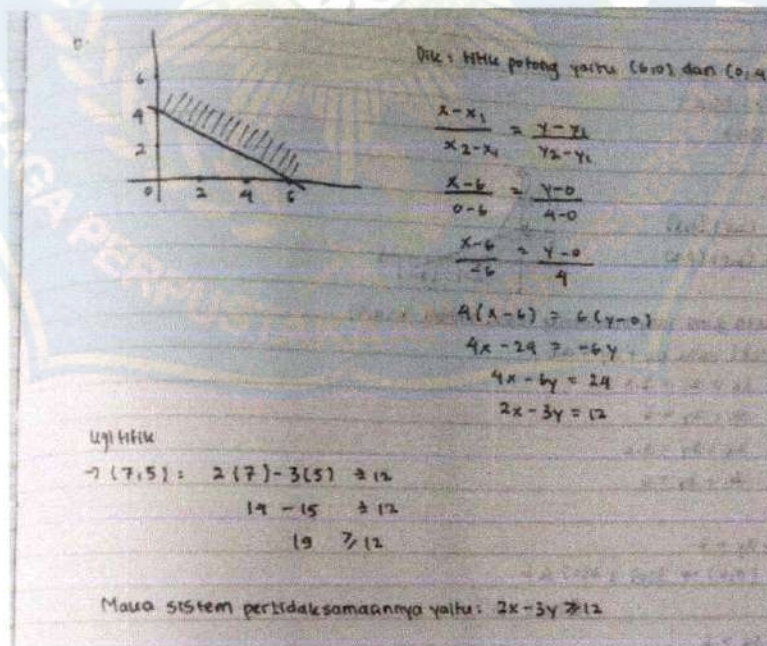 6
4
2
0 2 4 6
Dik : titik potong yaitu (6,0) dan (0,4
x-x₁ / x₂-x₁ = y-y₁ / y₂-y₁
x-6 / 0-6 = y-0 / 4-0
x-6 / -6 = y-0 / 4
4(x-6) = 6(y-0)
4x-24 = -6y
4x-6y = 24
2x-3y = 12
Uji titik
→ (7,5) : 2(7)-3(5) ≥ 12
14 - 15 ≥ 12
19 ≥ 12
Maka sistem pertidaksamaannya yaitu: 2x-3y ≥ 12